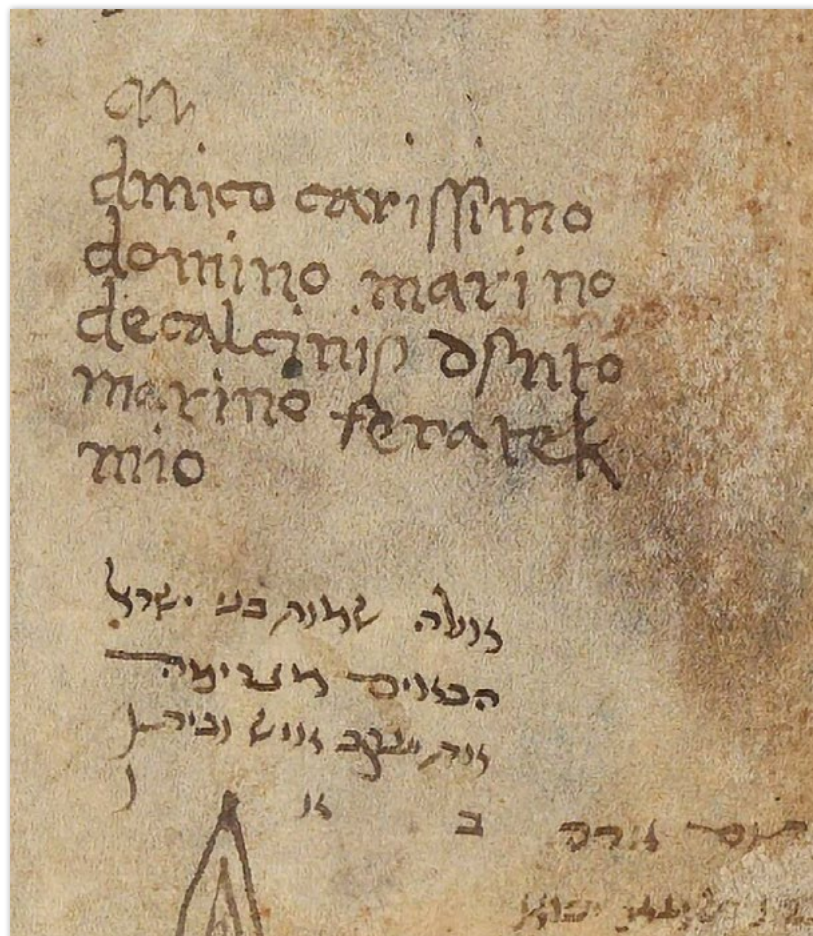 am
amico carissimo
domino marino
decalcinis dsnto
marino feratek
mio
ואלה שמות בני ישראל
הבאים מצרימה
את יעקב איש וביתו
ב או